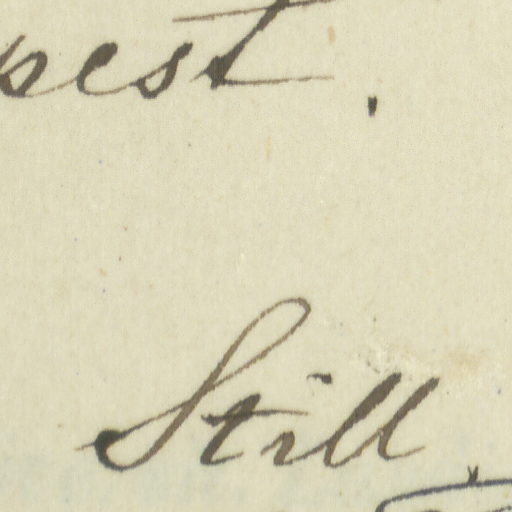 pest.
Still